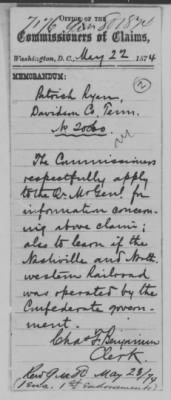 OFFICE OF THE
Commissioners of Claims,
Washington, D.C., May 22 1874
MEMORANDUM:
2
Patrick Ryan,
Davidson Co. Tenn.
No 20660
The Commissioners
respectfully apply
to the Qr. M. Genl. for
information concern-
ing above claim;
also to learn if the
Nashville and North-
western Railroad
was operated by the
Confederate govern-
ment.
Chas F. Benjamin
Clerk.
May 23/74
1st Endorsement